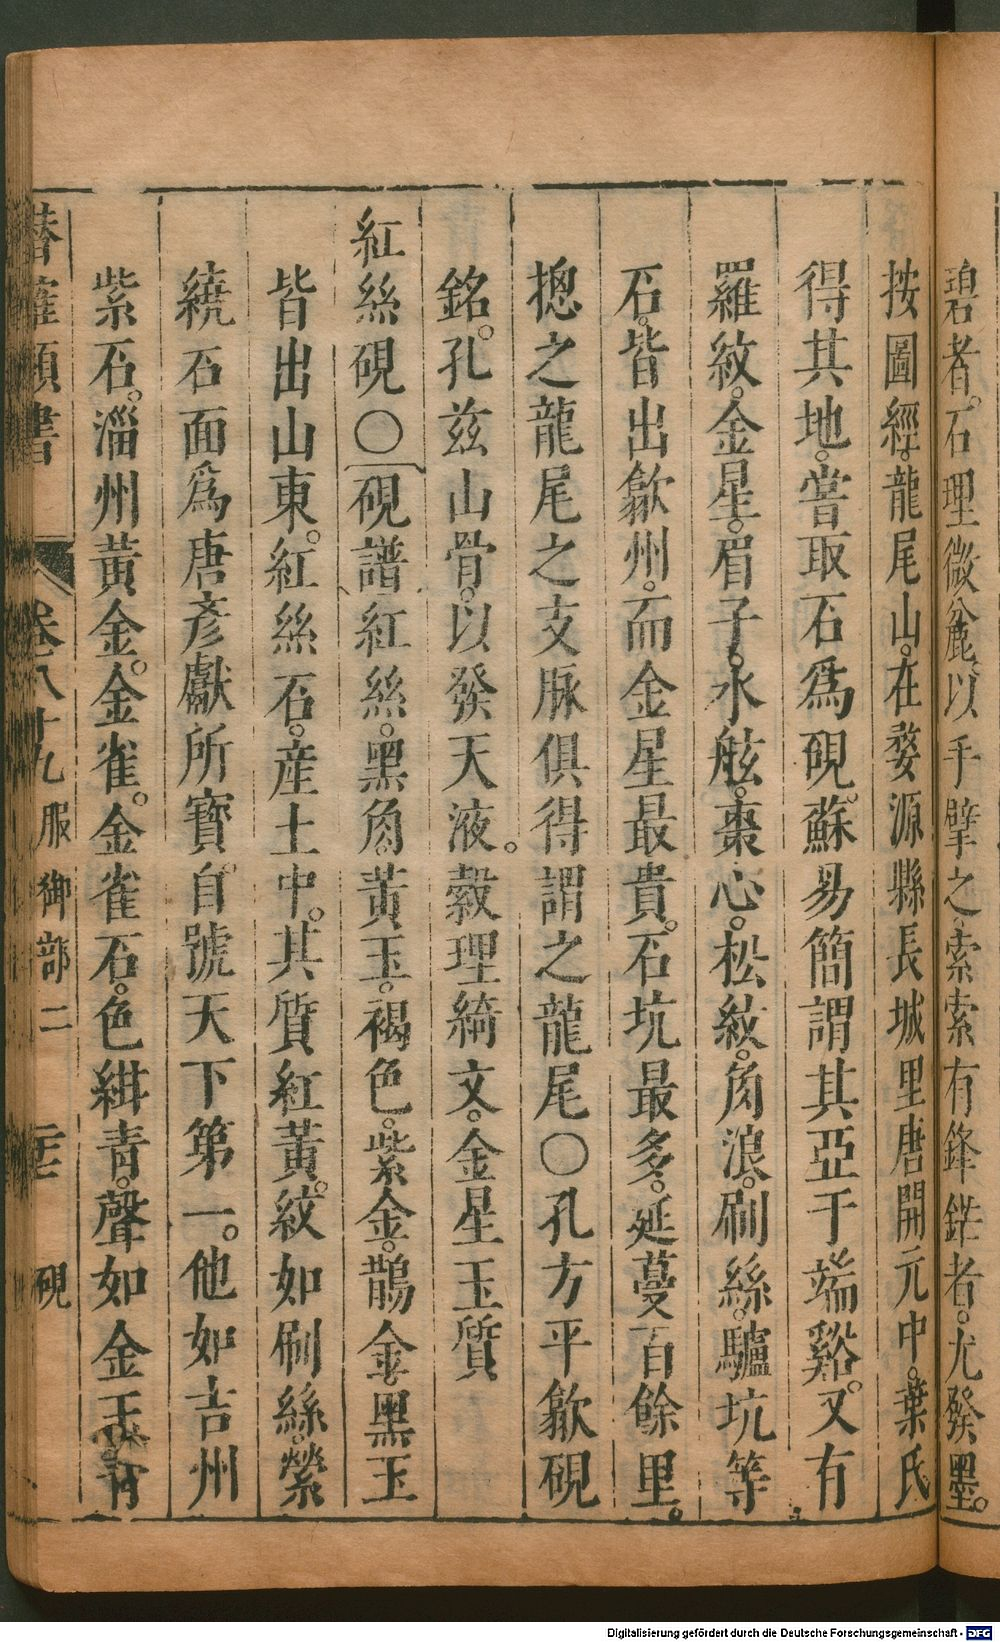 碧者。石理微麄。以手擘之索索有鋒鋩者。尤發墨。
按圖經。龍尾山。在婺源縣長城里唐開元中。葉氏
得其地。嘗取石爲硯。蘇易簡謂其亞于端谿。又有
羅紋。金星。眉子。水舷。棗心。松紋。角浪。刷絲。驢坑等
石。皆出歙州。而金星最貴。石坑最多。延蔓百餘里。
摠之龍尾之支脉俱得謂之龍尾〇孔方平歙硯
銘。孔兹山骨。以發天液。縠理綺文。金星玉質
紅絲硯〇硯譜紅絲。黑角。黃玉。褐色。紫金。鵲金。黑玉
皆出山東。紅絲石。産土中。其質紅黃。紋如刷絲。縈
繞石面爲唐彥猷所寶。自號天下第一。他如吉州
紫石。淄州黃金。金雀。金雀石。色紺青。聲如金玉。
潛確類書 卷八十九 服御部二 硯
Digitalisierung gefördert durch die Deutsche Forschungsgemeinschaft - DFG